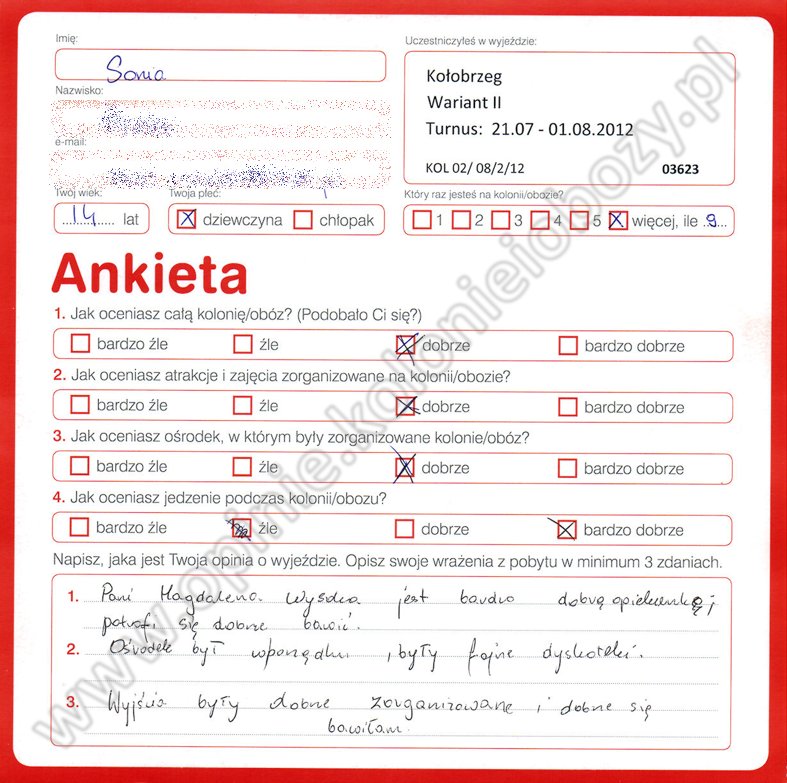 Imię:
Sonia
Nazwisko:
e-mail:
Twój wiek:
14 lat
Twoja płeć:
dziewczyna chłopak
Uczestniczyłeś w wyjeździe:
Kołobrzeg
Wariant II
Turnus: 21.07 - 01.08.2012
KOL 02/ 08/2/12 03623
Który raz jesteś na kolonii/obozie?
1 2 3 4 5 więcej, ile 9
Ankieta
1. Jak oceniasz całą kolonię/obóz? (Podobało Ci się?)
bardzo źle źle dobrze bardzo dobrze
2. Jak oceniasz atrakcje i zajęcia zorganizowane na kolonii/obozie?
bardzo źle źle dobrze bardzo dobrze
3. Jak oceniasz ośrodek, w którym były zorganizowane kolonie/obóz?
bardzo źle źle dobrze bardzo dobrze
4. Jak oceniasz jedzenie podczas kolonii/obozu?
bardzo źle źle dobrze bardzo dobrze
Napisz, jaka jest Twoja opinia o wyjeździe. Opisz swoje wrażenia z pobytu w minimum 3 zdaniach.
1. Pani Magdalena Wysocka jest bardzo dobrą opiekunką i
potrafi się dobrze bawić.
2. Ośrodek był wporządku, były fajne dyskoteki.
3. Wyjścia były dobrze zorganizowane i dobrze się
bawiłam.
www.opinie.kolonieiobozy.pl